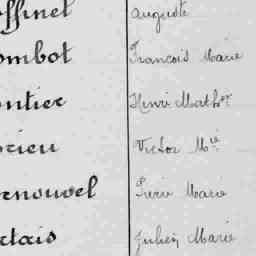 ffinel auguste
ombot François Marie
ntier Henri Mathin
rieu Victor Mie
renouvel Pierre Marie
rtais Julien Marie